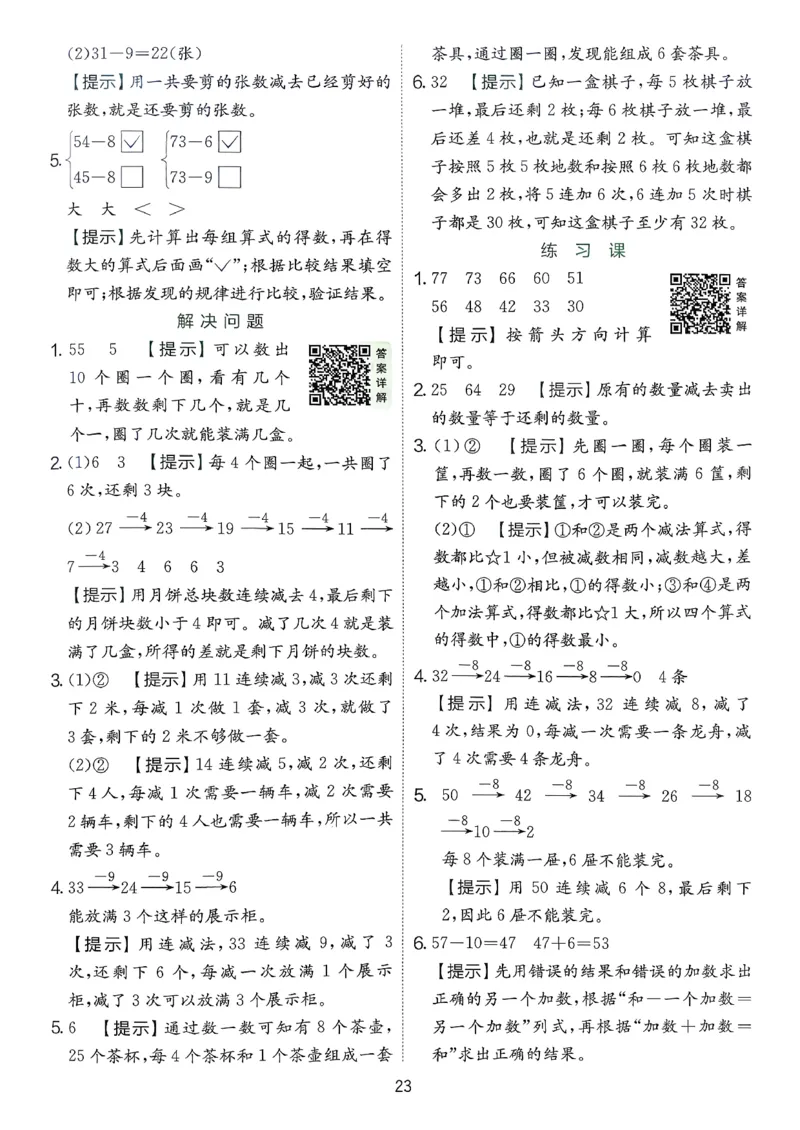 (2)31-9=22(张)
【提示】用一共要剪的张数减去已经剪好的
张数,就是还要剪的张数。
5.
54-8 ✓ 73-6 ✓
45-8 □ 73-9 □
大 大 < >
【提示】先计算出每组算式的得数,再在得
数大的算式后面画“✓”;根据比较结果填空
即可;根据发现的规律进行比较,验证结果。
解决问题
1. 55 5 【提示】可以数出
10 个圈一个圈,看有几个
十,再数数剩下几个,就是几
个一,圈了几次就能装满几盒。
答案详解
2. (1)6 3 【提示】每 4 个圈一起,一共圈了
6 次,还剩 3 块。
(2) 27 —-4→ 23 —-4→ 19 —-4→ 15 —-4→ 11 —-4→
7 —-4→ 3 4 6 6 3
【提示】用月饼总块数连续减去 4,最后剩下
的月饼块数小于 4 即可。减了几次 4 就是装
满了几盒,所得的差就是剩下月饼的块数。
3. (1)② 【提示】用 11 连续减 3,减 3 次还剩
下 2 米,每减 1 次做 1 套,减 3 次,就做了
3 套,剩下的 2 米不够做一套。
(2)② 【提示】14 连续减 5,减 2 次,还剩
下 4 人,每减 1 次需要一辆车,减 2 次需要
2 辆车,剩下的 4 人也需要一辆车,所以一共
需要 3 辆车。
4. 33 —-9→ 24 —-9→ 15 —-9→ 6
能放满 3 个这样的展示柜。
【提示】用连减法,33 连续减 9,减了 3
次,还剩下 6 个,每减一次放满 1 个展示
柜,减了 3 次可以放满 3 个展示柜。
5. 6 【提示】通过数一数可知有 8 个茶壶,
25 个茶杯,每 4 个茶杯和 1 个茶壶组成一套
茶具,通过圈一圈,发现能组成 6 套茶具。
6. 32 【提示】已知一盒棋子,每 5 枚棋子放
一堆,最后还剩 2 枚;每 6 枚棋子放一堆,最
后还差 4 枚,也就是还剩 2 枚。可知这盒棋
子按照 5 枚 5 枚地数和按照 6 枚 6 枚地数都
会多出 2 枚,将 5 连加 6 次,6 连加 5 次时棋
子都是 30 枚,可知这盒棋子至少有 32 枚。
练习课
1. 77 73 66 60 51
56 48 42 33 30
【提示】按箭头方向计算
即可。
答案详解
2. 25 64 29 【提示】原有的数量减去卖出
的数量等于还剩的数量。
3. (1)② 【提示】先圈一圈,每个圈装一
筐,再数一数,圈了 6 个圈,就装满 6 筐,剩
下的 2 个也要装筐,才可以装完。
(2)① 【提示】①和②是两个减法算式,得
数都比☆1 小,但被减数相同,减数越大,差
越小,①和②相比,①的得数小;③和④是两
个加法算式,得数都比☆1 大,所以四个算式
的得数中,①的得数最小。
4. 32 —-8→ 24 —-8→ 16 —-8→ 8 —-8→ 0 4 条
【提示】用连减法,32 连续减 8,减了
4 次,结果为 0,每减一次需要一条龙舟,减
了 4 次需要 4 条龙舟。
5. 50 —-8→ 42 —-8→ 34 —-8→ 26 —-8→ 18
—-8→ 10 —-8→ 2
每 8 个装满一屉,6 屉不能装完。
【提示】用 50 连续减 6 个 8,最后剩下
2,因此 6 屉不能装完。
6. 57-10=47 47+6=53
【提示】先用错误的结果和错误的加数求出
正确的另一个加数,根据“和-一个加数=
另一个加数”列式,再根据“加数+加数=
和”求出正确的结果。
23